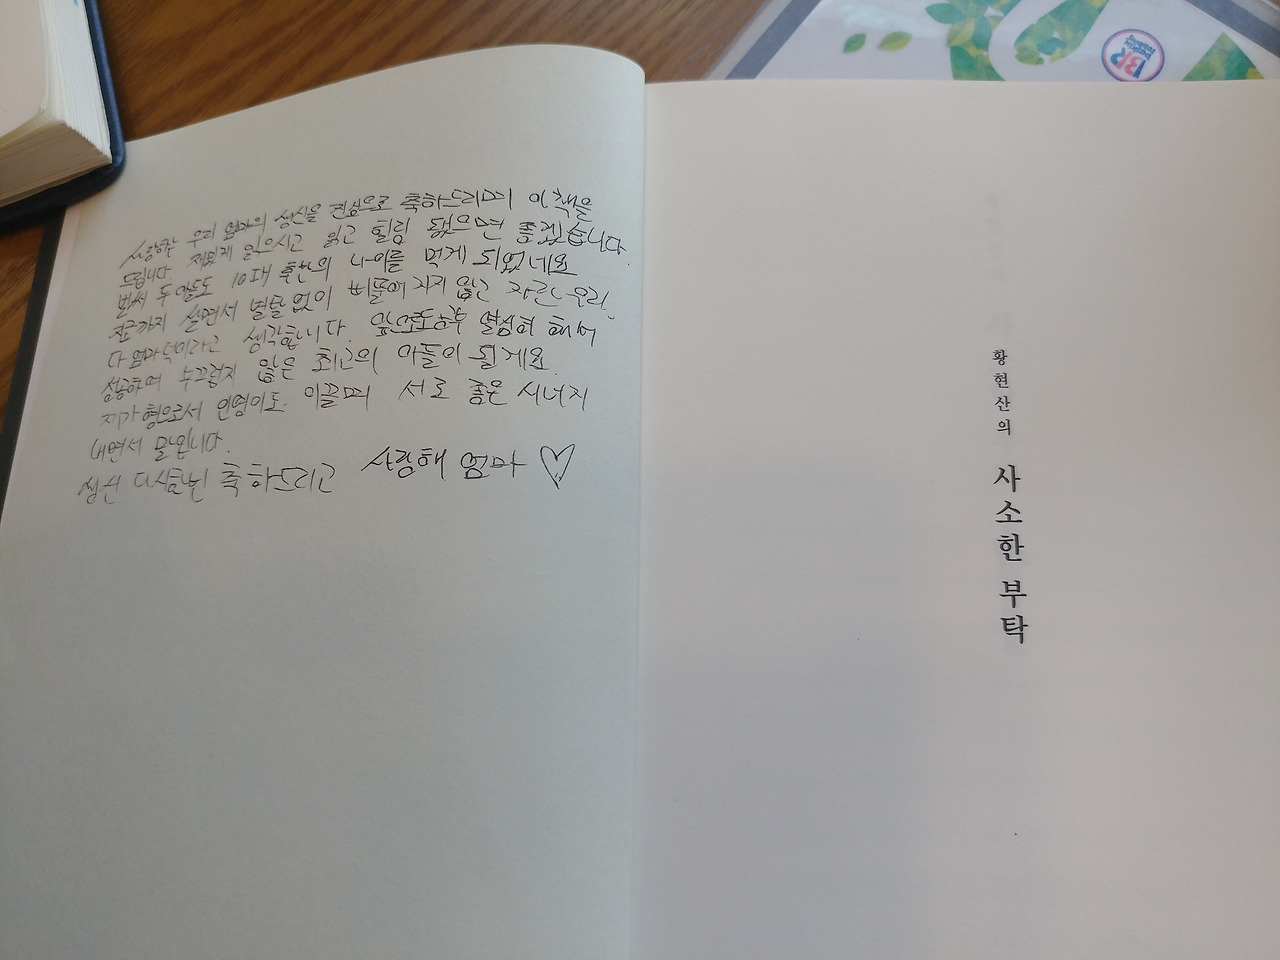 사랑하는 우리 엄마의 생신을 진심으로 축하드리며 이 책을
드립니다. 재밌게 읽으시고 읽고 힐링 됐으면 좋겠습니다.
벌써 두 아들도 10대 후반의 나이를 먹게 되었네요
지금까지 살면서 별탈 없이 삐뚤어지지 않고 자란 우리
다 엄마 덕이라고 생각합니다. 앞으로도 열심히 해서
성공하여 부끄럽지 않은 최고의 아들이 될게요.
제가 형으로서 이끌며 서로 좋은 시너지
내면서 말입니다.
생신 다시한번 축하드리고 사랑해 엄마 ♡
황현산의
사소한 부탁
BR
baskin robbins